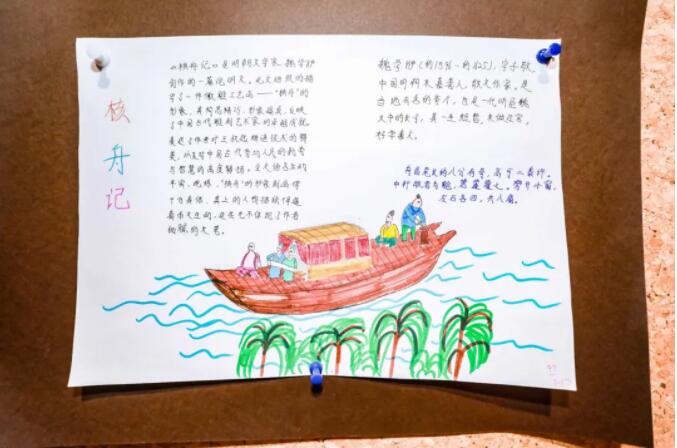 核舟记
《核舟记》是明朝文学家魏学洢
创作的一篇说明文。此文细致的描
写了一件微雕工艺品——“核舟”的
形象，其构思精巧，形象逼真，反映
了中国古代雕刻艺术家的卓越成就
表达了作者对王叔远精湛技术的赞
美，以及对中国古代劳动人民的勤劳
与智慧的高度赞扬。全文语言上的
平实、洗练，“核舟”的形象刻画得
十分具体，其上的人物描绘得逼
真而又生动，
细腻的文笔。
魏学洢（约1596－约1625），字子敬，
中国明朝末嘉善人，散文作家。是
当地有名的秀才，也是一代明臣魏
大中的长子，一生短暂，未做过官，
好学善文。
舟首尾长约八分有奇，高可二黍许。
中轩敞者为舱，箬篷覆之。旁开小窗，
左右各四，共八扇。